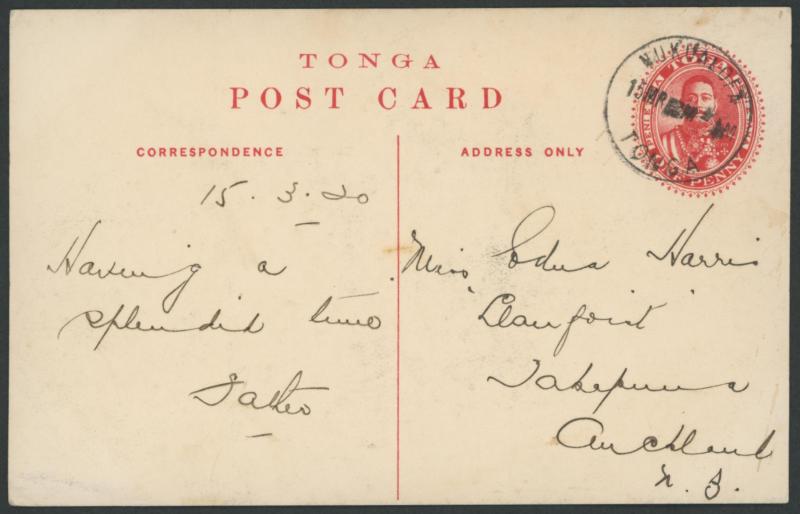 TONGA
POST CARD
CORRESPONDENCE
ADDRESS ONLY
15.3.20
Having a
splendid time
Father
Miss Edna Harris
"Llanfoist"
Takapuna
Auckland
N.Z.
NUKUALOFA
TONGA
TONGA
PENNY